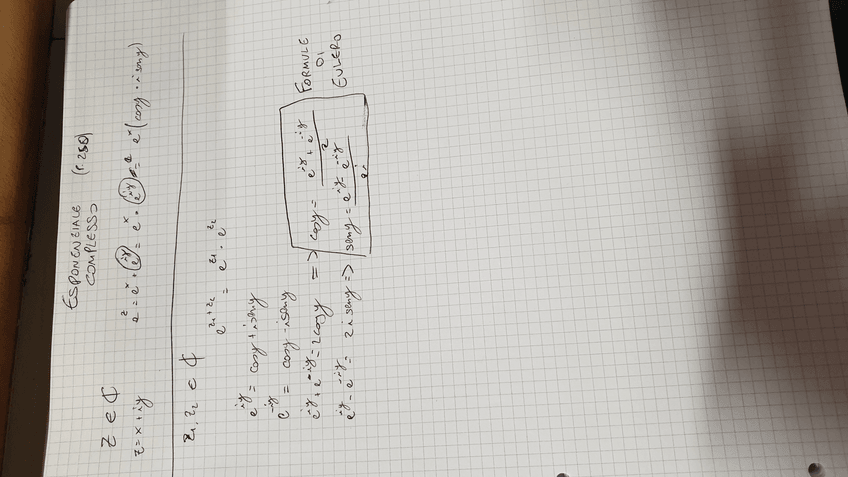 ESPONENZIALE (P. 250)
COMPLESSO
z ∈ ℂ
z = x + iy
e^z = e^x · e^{iy} = e^x · e^{iy} = e^x (cos y + i sen y)
z₁, z₂ ∈ ℂ
e^{z₁+z₂} = e^{z₁} · e^{z₂}
e^{iy} = cos y + i sen y
e^{-iy} = cos y - i sen y
e^{iy} + e^{-iy} = 2 cos y => cos y = (e^{iy} + e^{-iy})/2
e^{iy} - e^{-iy} = 2 i sen y => sen y = (e^{iy} - e^{-iy})/2i
FORMULE
DI
EULERO